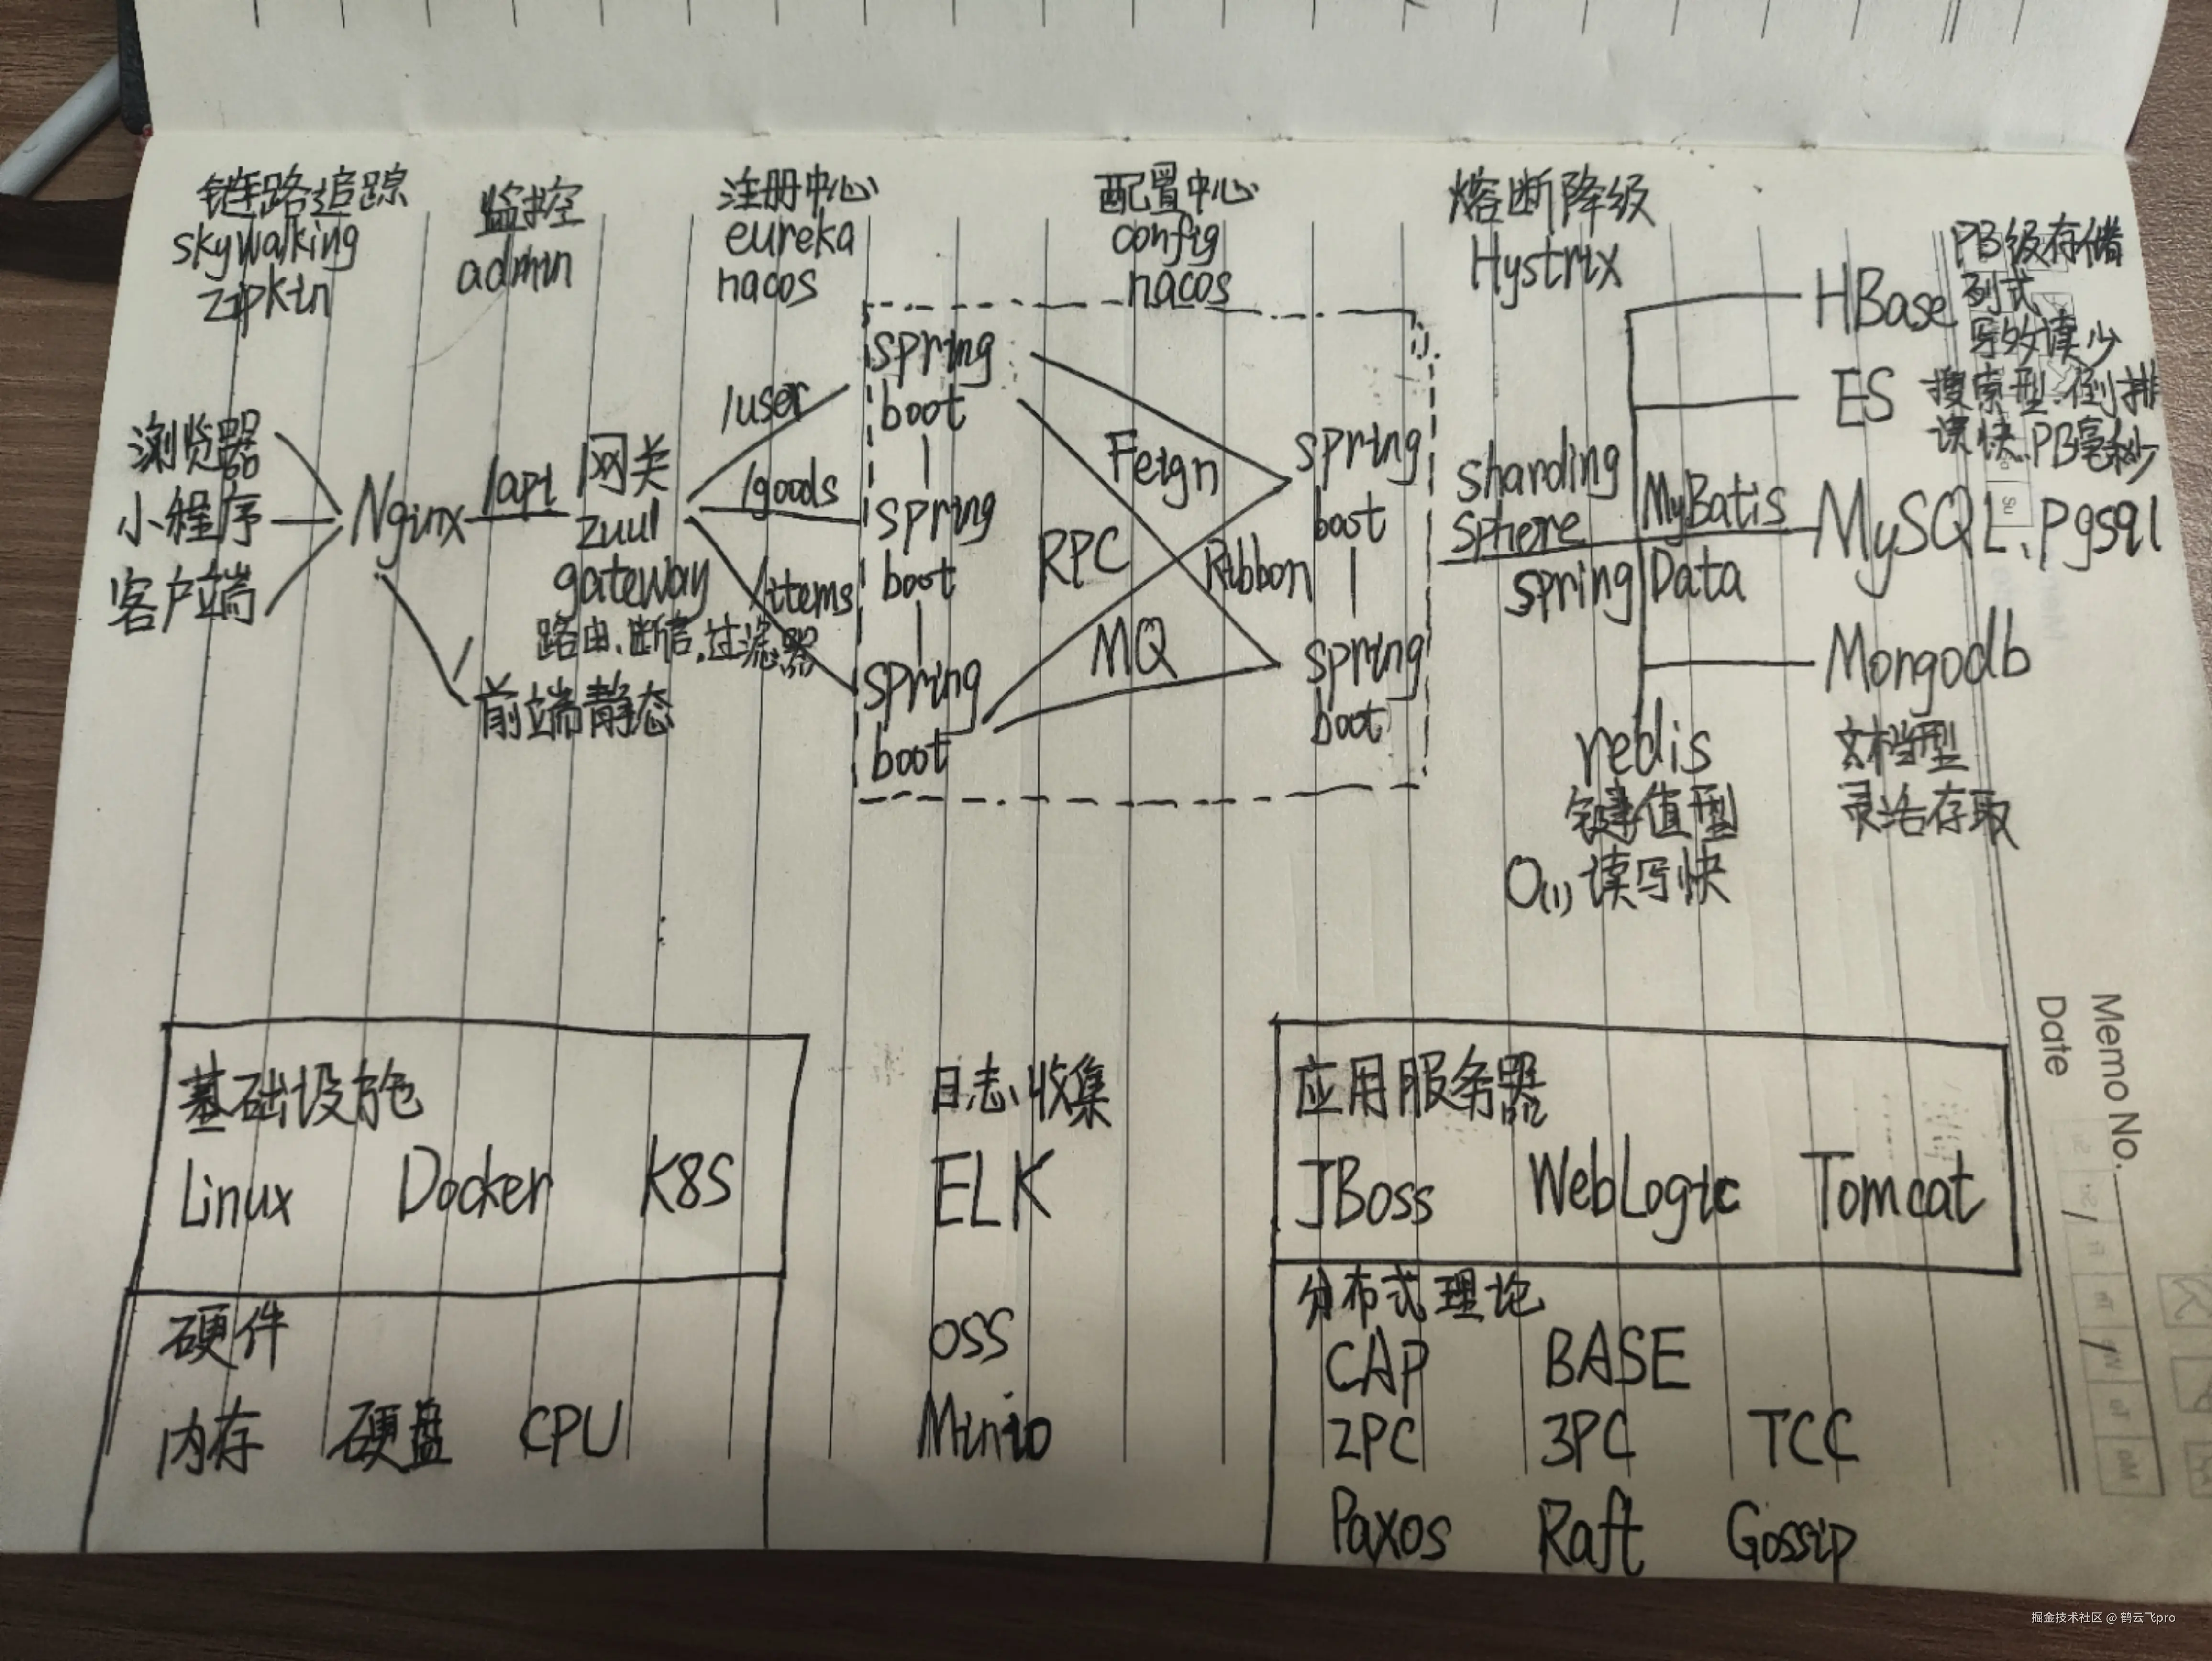 链路追踪
skywalking
zipkin
监控
admin
注册中心
eureka
nacos
配置中心
config
nacos
熔断降级
Hystrix
浏览器
小程序
客户端
Nginx
/api
/
前端静态
网关
zuul
gateway
路由、断言、过滤器
/user
/goods
/items
spring
boot
spring
boot
spring
boot
Feign
RPC
Ribbon
MQ
spring
boot
spring
boot
sharding
sphere
MyBatis
spring Data
HBase
PB级存储
列式
写多读少
ES
搜索型.倒排
读快.PB毫秒
MySQL、Pgsql
Mongodb
文档型
灵活存取
redis
键值型
O(1)读写快
基础设施
Linux Docker K8S
硬件
内存 硬盘 CPU
日志收集
ELK
OSS
Minio
应用服务器
JBoss WebLogic Tomcat
分布式理论
CAP BASE
2PC 3PC TCC
Paxos Raft Gossip
Memo No.
Date
掘金技术社区 @ 鹤云飞pro